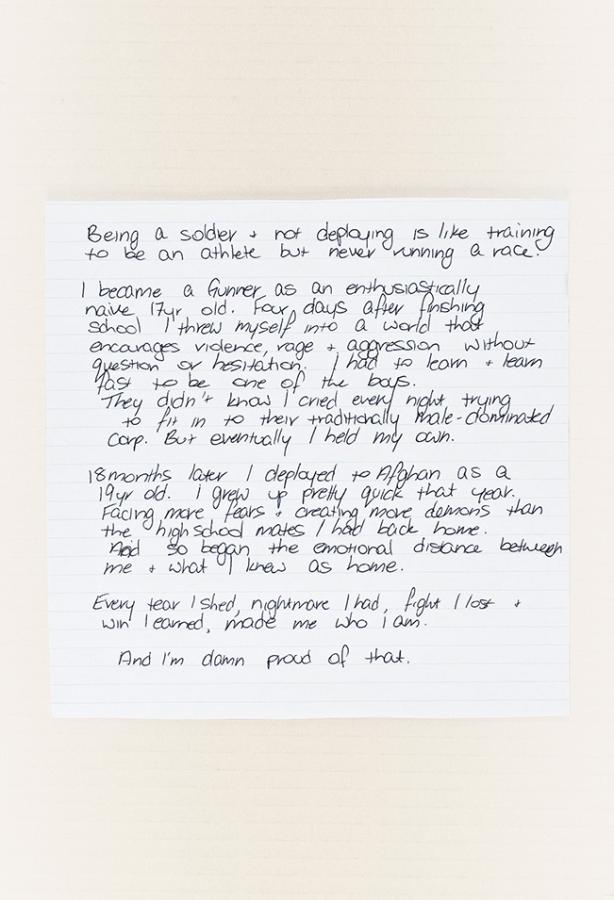 Being a soldier + not deploying is like training
to be an athlete but never running a race.
I became a Gunner as an enthusiastically
naive 17yr old. Four days after finshing
school I threw myself into a world that
encourages violence, rage + aggression without
question or hesitation. I had to learn + learn
fast to be one of the boys.
They didn't know I cried every night trying
to fit in to their traditionally male-dominated
corp. But eventually I held my own.
18months later I deployed to Afghan as a
19yr old. I grew up pretty quick that year.
Facing more fears + creating more demons than
the highschool mates I had back home.
And so began the emotional distance between
me + what I knew as home.
Every tear I shed, nightmare I had, fight I lost +
win I earned, made me who I am.
And I'm damn proud of that.